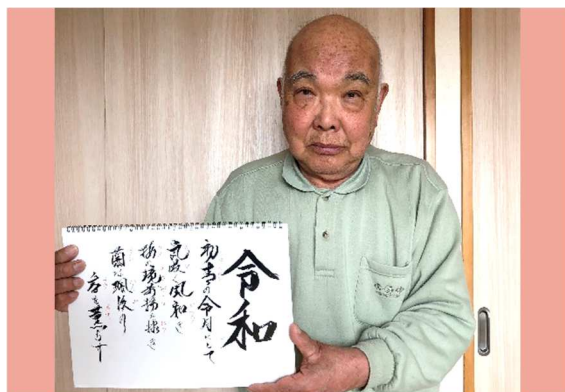 令和
初春の令月にして
気淑く風和ぎ
梅は鏡前の粉を披き
蘭は珮後の
香を薫らす